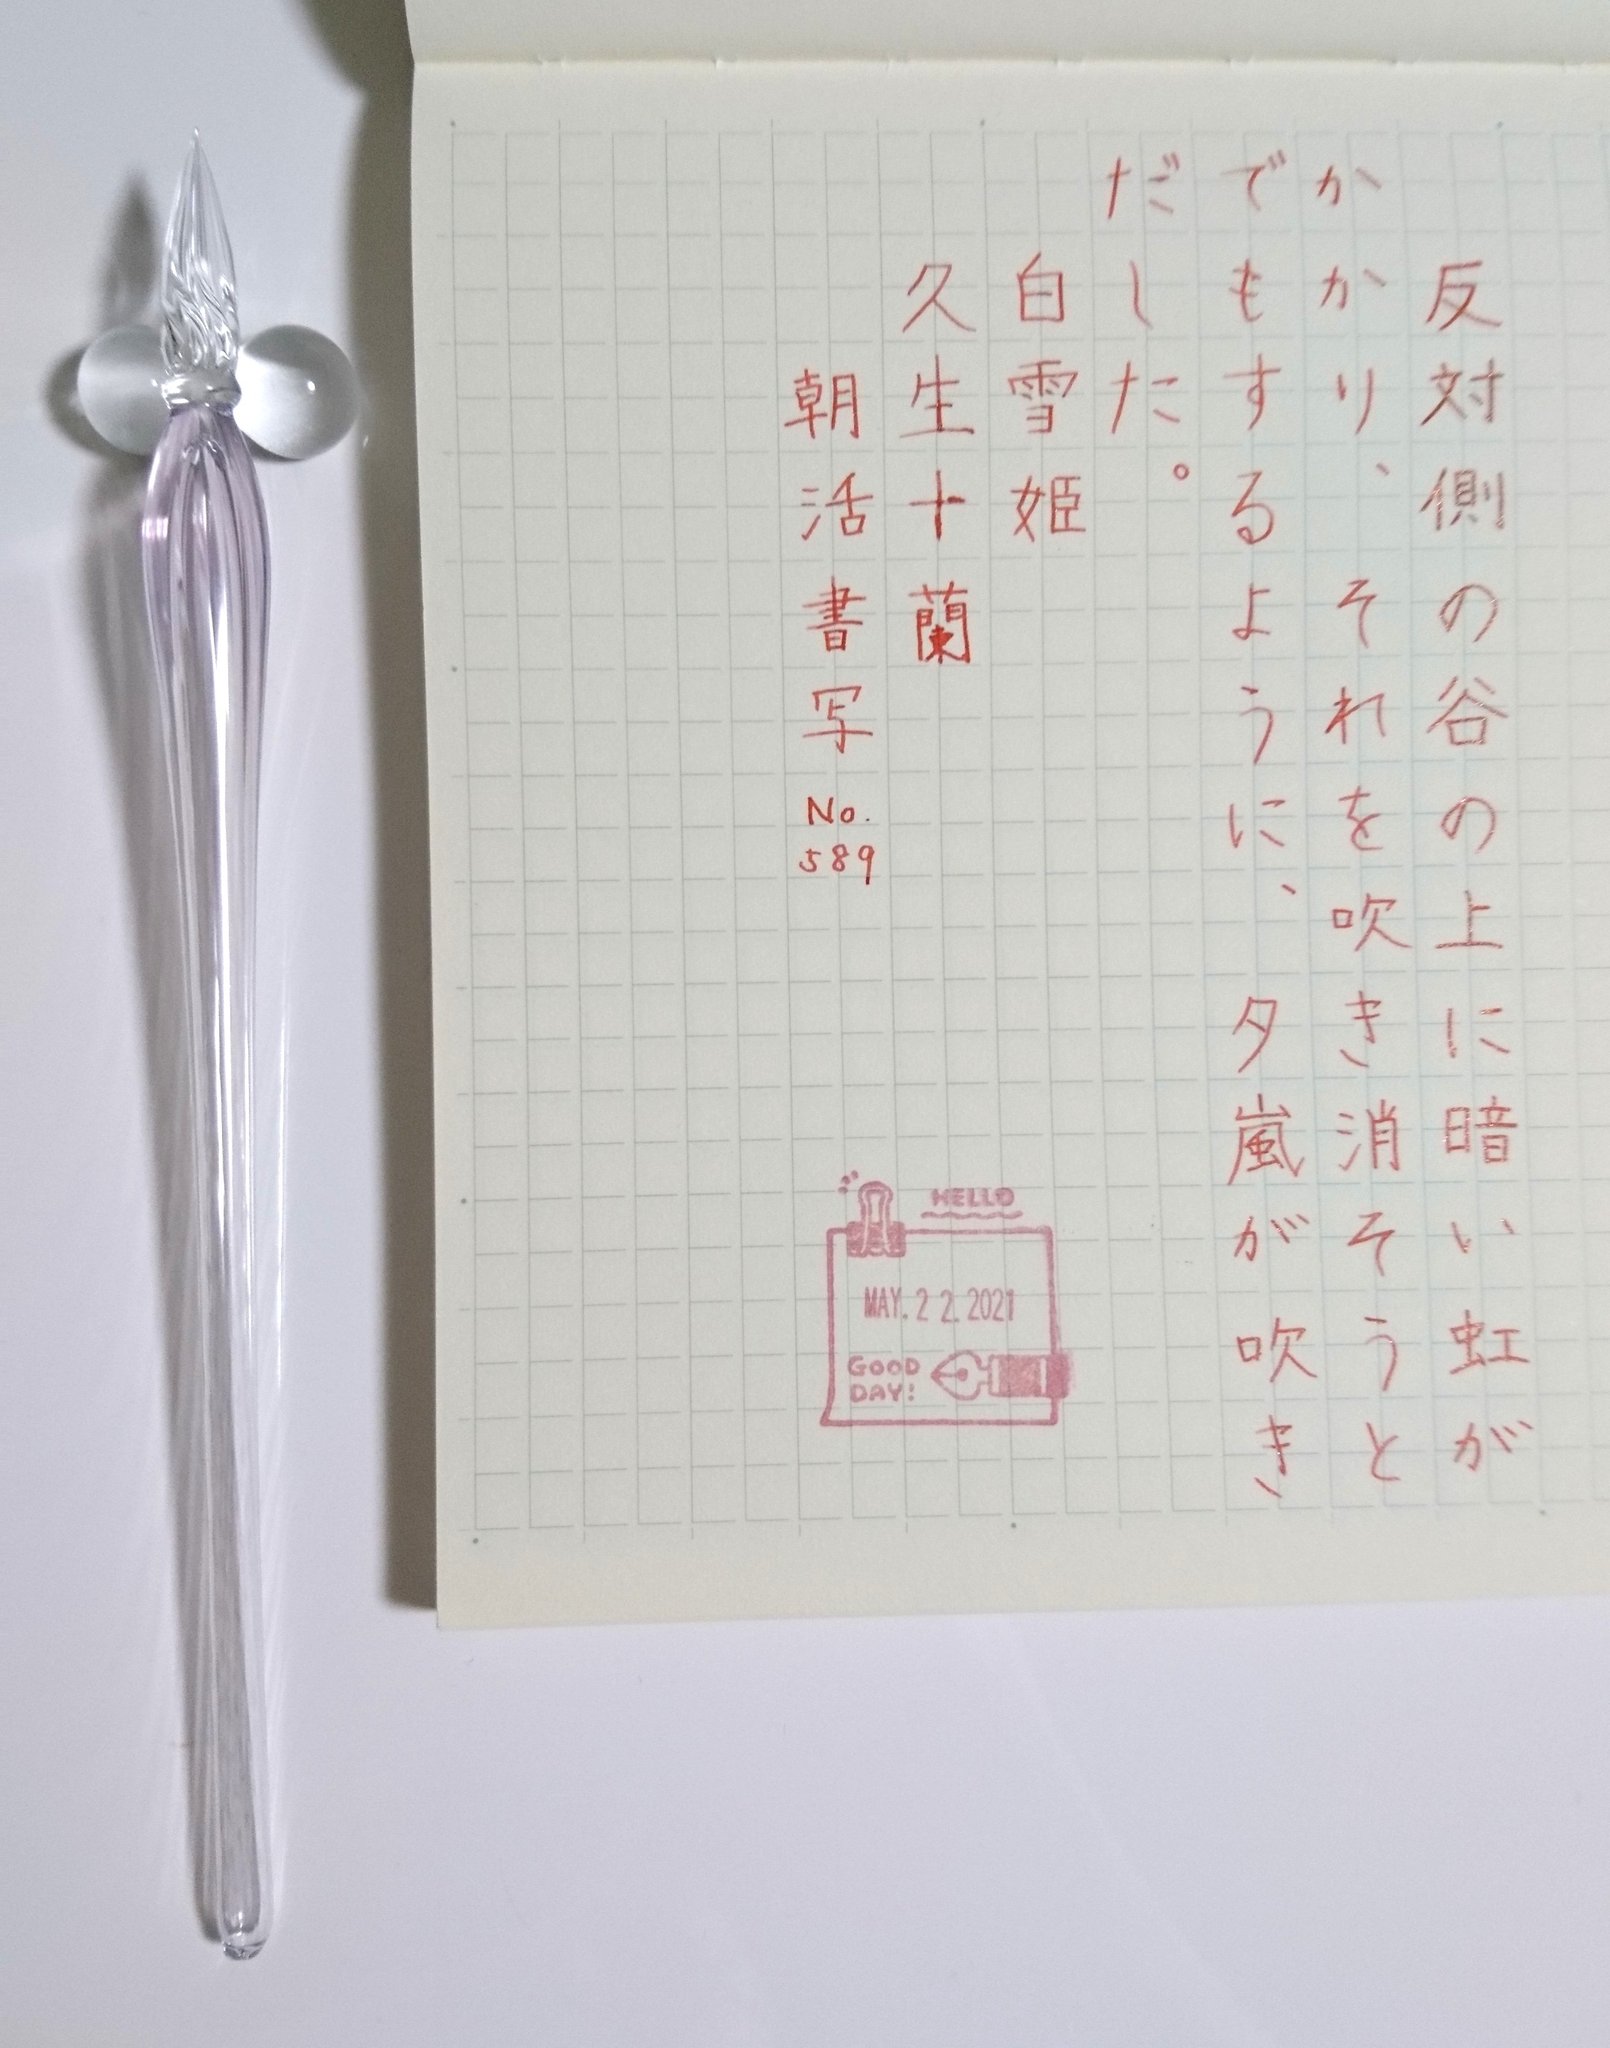 反対側の谷の上に暗い虹が
かかり、それを吹き消そうと
でもするように、夕嵐が吹き
だした。
白雪姫
久生十蘭
朝活書写
No.
589
HELLO
MAY.22.2021
GOOD
DAY!